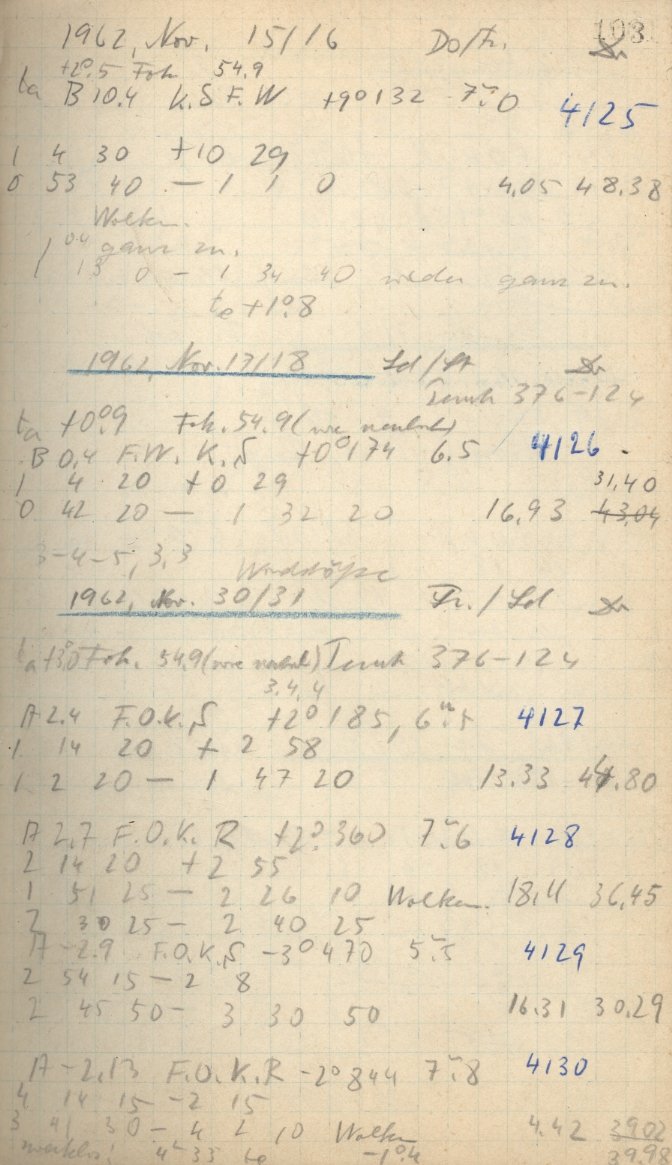 103
1962, Nov. 15/16 Do/Fr.
ta +2°.5 Fok. 54.9
B 10.4 K.S F.W +9°132 7m.0 4125
1 4 30 +10 29
0 53 40 — 1 1 0 4.05 48.38
Wolken.
ganz zu.
1 13 0 — 1 34 40 wieder ganz zu.
te +1°.8
1962, Nov. 17/18 Sd/St
376-124
ta +0°.9 Fok. 54.9 (wie neulich)
B 0.4 F.W. K.S +0°174 6.5 4126
1 4 20 +0 29 31.40
0 42 20 — 1 32 20 16.93 43.04
3-4-5, 3,3 Windstöße
1962, Nov. 30/31 Fr./Sd
ta +3°.0 Fok. 54.9 (wie neulich) 376-124
3,4,4
A 2.4 F.O.K.S +2°185, 6m.5 4127
1 14 20 + 2 58
1 2 20 — 1 47 20 13.33 44.80
A 2.7 F.O.K.R +2°360 7m.6 4128
2 14 20 +2 55
1 51 25 — 2 26 10 Wolken. 18.11 36.45
2 30 25 — 2 40 25
A -2.9 F.O.K.S -3°470 5m.5 4129
2 54 15 -2 8
2 45 50 — 3 30 50 16.31 30.29
A -2.13 F.O.K.R -2°844 7m.8 4130
4 14 15 -2 15
3 41 30 — 4 2 10 Wolken 4.42 3902
4h 33 te -1°.4 39.98